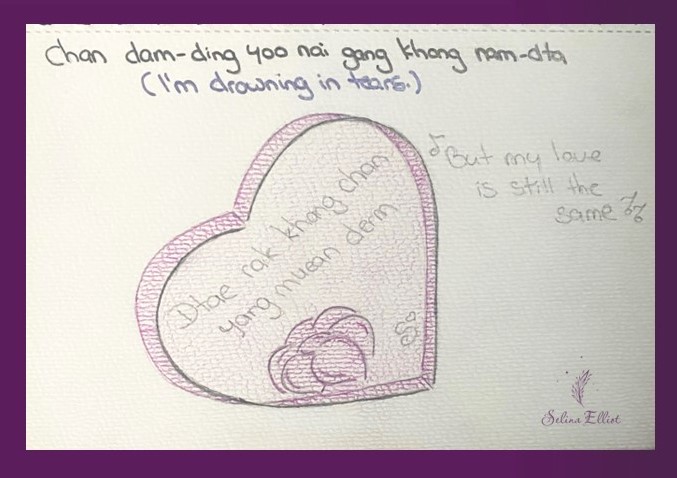 Chan dam-ding yoo nai gong khong nam-dta
(I'm drowning in tears.)
Dtae rak khong chan
yang muean derm
But my love
is still the
same
Selina Elliot